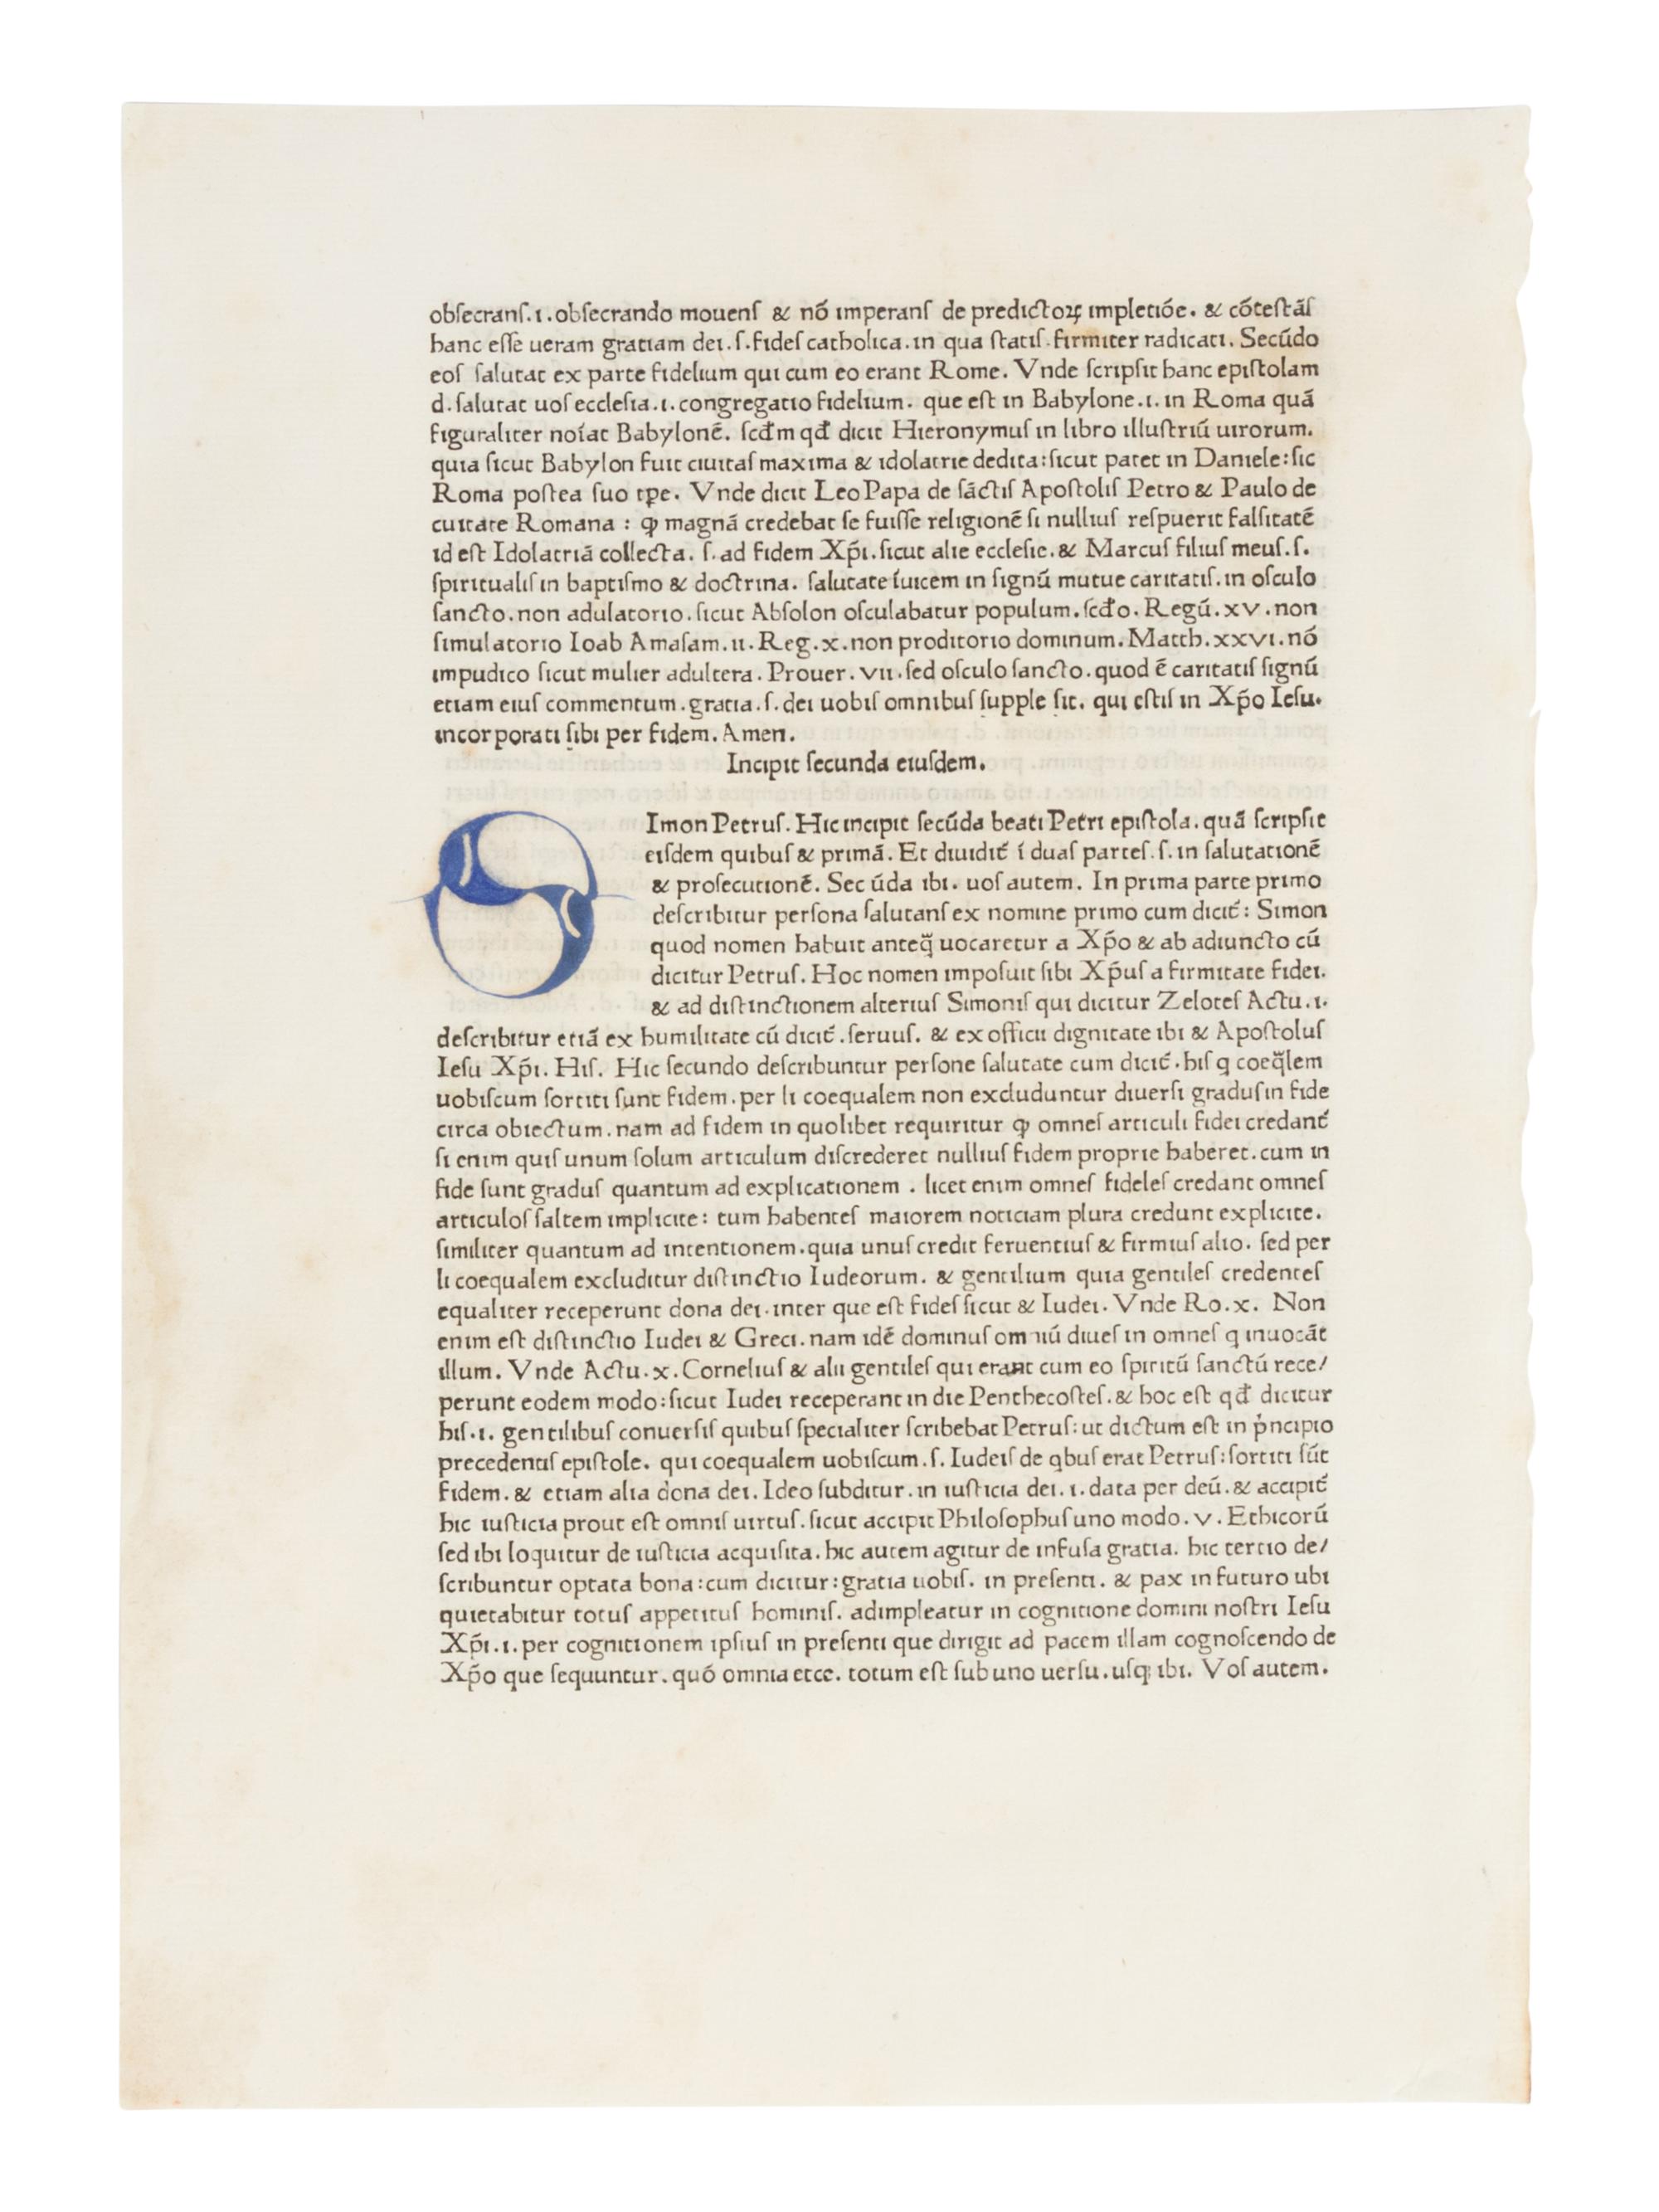 obſecranſ.ı.obſecrando mouenſ & nō ımperanſ de predictoꝝ ımpletiōe. & cōteſtāſ
hanc eſſe ueram gratıam deı.ſ.fıdeſ catholıca.ın qua ſtatıſ.fırmıter radıcatı. Secūdo
eoſ ſalutat ex parte fıdelıum quı cum eo erant Rome. Vnde ſcrıpſıt hanc epıſtolam
d.ſalutat uoſ eccleſıa.ı.congregatıo fıdelıum. que eſt ın Babylone.ı.ın Roma quā
fıguralıter noīat Babylonē. ſcđm qđ dıcıt Hıeronymuſ ın lıbro ılluſtrıū uırorum.
quıa ſıcut Babylon fuıt cıuıtaſ maxıma & ıdolatrıe dedıta:ſıcut patet ın Danıele:ſıc
Roma poſtea ſuo tꝑe. Vnde dıcıt Leo Papa de ſāctıſ Apoſtolıſ Petro & Paulo de
cuıtate Romana : ꝙ magnā credebat ſe fuıſſe relıgıonē ſı nullıuſ reſpuerıt falſıtatē
ıd eſt Idolatrıā collecta. ſ.ad fıdem Xp̄ı.ſıcut alıe eccleſıe.& Marcuſ fılıuſ meuſ.ſ.
ſpırıtualıſ ın baptıſmo & doctrına. ſalutate īuıcem ın ſıgnū mutue carıtatıſ.ın oſculo
ſancto.non adulatorıo.ſıcut Abſolon oſculabatur populum.ſcđo.Regū.xv.non
ſımulatorıo Ioab Amaſam.ıı.Reg.x.non prodıtorıo domınum.Matth.xxvı.nō
ımpudıco ſıcut mulıer adultera.Prouer.vıı.ſed oſculo ſancto.quod ē carıtatıſ ſıgnū
etıam eıuſ commentum.gratıa.ſ.deı uobıſ omnıbuſ ſupple ſıt. quı eſtıſ ın Xp̄o Ieſu.
ıncorporatı ſıbı per fıdem.Amen.
Incıpıt ſecunda eıuſdem.
SImon Petruſ. Hıc ıncıpıt ſecūda beatı Petrı epıſtola.quā ſcrıpſıt
eıſdem quıbuſ & prımā. Et dıuıdıt᷑ ī duaſ parteſ.ſ.ın ſalutatıonē
& proſecutıonē. Secūda ıbı. uoſ autem. In prıma parte prımo
deſcrıbıtur perſona ſalutanſ ex nomıne prımo cum dıcıt᷑: Sımon
quod nomen habuıt anteq̄ uocaretur a Xp̄o & ab adıuncto cū
dıcıtur Petruſ. Hoc nomen ımpoſuıt ſıbı Xp̄uſ a fırmıtate fıdeı.
& ad dıſtınctıonem alterıuſ Sımonıſ quı dıcıtur Zeloteſ Actu.ı.
deſcrıbıtur etıā ex humılıtate cū dıcıt᷑.ſeruuſ. & ex offıcıı dıgnıtate ıbı & Apoſtoluſ
Ieſu Xp̄ı. Hıſ. Hıc ſecundo deſcrıbuntur perſone ſalutate cum dıcıt᷑.hıſ q coeq̄lem
uobıſcum ſortıtı ſunt fıdem.per lı coequalem non excluduntur dıuerſı graduſ ın fıde
cırca obıectum.nam ad fıdem ın quolıbet requırıtur ꝙ omneſ artıculı fıdeı credant᷑
ſı enım quıſ unum ſolum artıculum dıſcrederet nullıuſ fıdem proprıe haberet.cum ın
fıde ſunt graduſ quantum ad explıcatıonem . lıcet enım omneſ fıdeleſ credant omneſ
artıculoſ ſaltem ımplıcıte: tum habenteſ maıorem notıcıam plura credunt explıcıte.
ſımılıter quantum ad ıntentıonem.quıa unuſ credıt feruentıuſ & fırmıuſ alıo. ſed per
lı coequalem excludıtur dıſtınctıo Iudeorum. & gentılıum quıa gentıleſ credenteſ
equalıter receperunt dona deı.ınter que eſt fıdeſ ſıcut & Iudeı. Vnde Ro.x. Non
enım eſt dıſtınctıo Iudeı & Grecı.nam ıdē domınuſ omnıū dıueſ ın omneſ q ınuocāt
ıllum. Vnde Actu.x.Cornelıuſ & alıı gentıleſ quı erant cum eo ſpırıtū ſanctū rece/
perunt eodem modo:ſıcut Iudeı receperant ın dıe Penthecoſteſ.& hoc eſt qđ dıcıtur
hıſ.ı. gentılıbuſ conuerſıſ quıbuſ ſpecıalıter ſcrıbebat Petruſ:ut dıctum eſt ın p̍ncıpıo
precedentıſ epıſtole. quı coequalem uobıſcum.ſ. Iudeıſ de qbuſ erat Petruſ:ſortıtı ſūt
fıdem.& etıam alıa dona deı. Ideo ſubdıtur.ın ıuſtıcıa deı.ı.data per deū.& accıpıt᷑
hıc ıuſtıcıa prout eſt omnıſ uırtuſ.ſıcut accıpıt Phıloſophuſ uno modo.v.Ethıcorū
ſed ıbı loquıtur de ıuſtıcıa acquıſıta.hıc autem agıtur de ınfuſa gratıa. hıc tertıo de/
ſcrıbuntur optata bona:cum dıcıtur:gratıa uobıſ. ın preſentı. & pax ın futuro ubı
quıetabıtur totuſ appetıtuſ homınıſ. adımpleatur ın cognıtıone domını noſtrı Ieſu
Xp̄ı.ı.per cognıtıonem ıpſıuſ ın preſentı que dırıgıt ad pacem ıllam cognoſcendo de
Xp̄o que ſequuntur.quō omnıa etcc. totum eſt ſub uno uerſu.uſqꝫ ıbı. Voſ autem.